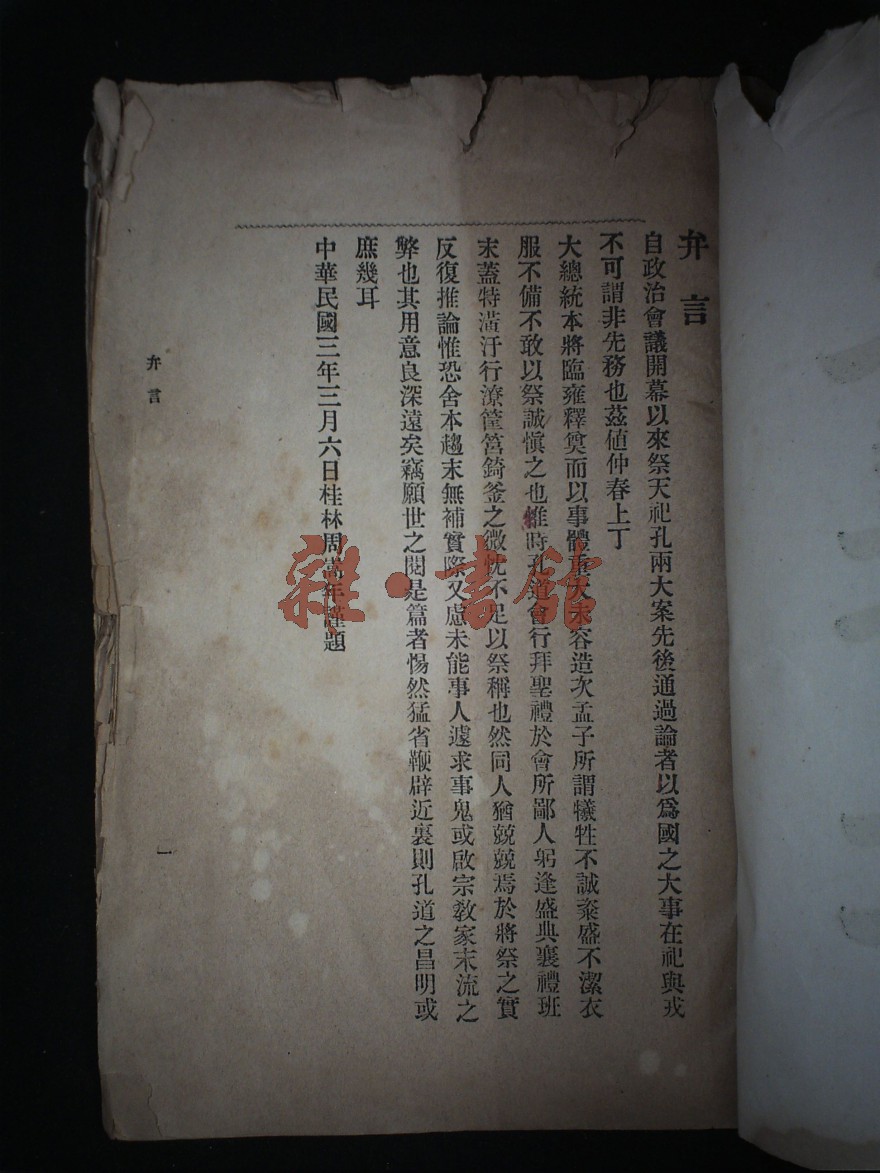 弁言
自政治會議開幕以來祭天祀孔兩大案先後通過論者以爲國之大事在祀與戎
不可謂非先務也茲值仲春上丁
大總統本將臨雍釋奠而以事體重大未容造次孟子所謂犧牲不誠粢盛不潔衣
服不備不敢以祭誠愼之也惟時孔道會行拜聖禮於會所鄙人躬逢盛典襄禮班
末蓋特潢汙行潦筐筥錡釜之微忱不足以祭稱也然同人猶兢兢焉於將祭之實
反復推論惟恐舍本趨末無補實際又慮未能事人遽求事鬼或啟宗教家末流之
弊也其用意良深遠矣竊願世之閱是篇者惕然猛省鞭辟近裏則孔道之昌明或
庶幾耳
中華民國三年三月六日桂林周嵩年謹題
弁言
一
雜·書館